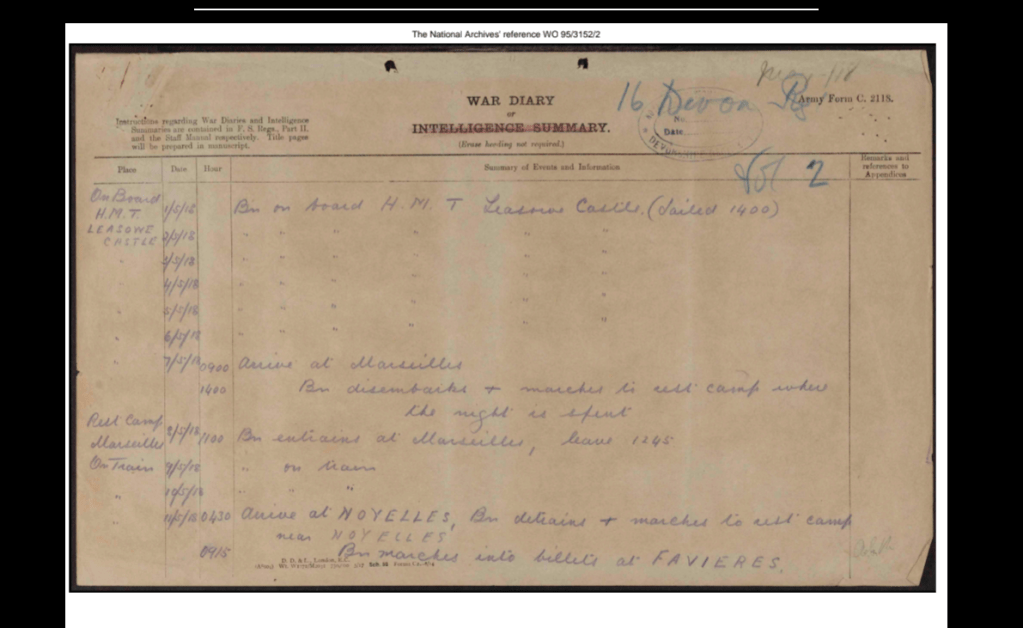 The National Archives' reference WO 95/3152/2
May /18
16 Devon R
Army Form C. 2118.
WAR DIARY
or
INTELLIGENCE SUMMARY.
(Erase heading not required.)
Instructions regarding War Diaries and Intelligence
Summaries are contained in F. S. Regs., Part II.
and the Staff Manual respectively. Title pages
will be prepared in manuscript.
No.
Date
DEVON
Vol 2
Place Date Hour Summary of Events and Information Remarks and references to Appendices
On Board
H.M.T. 1/5/18 Bn on board H.M.T Leasowe Castle. (Sailed 1400)
LEASOWE
CASTLE 2/5/18 " " " " "
" 3/5/18 " " " " "
" 4/5/18 " " " " "
" 5/5/18 " " " " "
" 6/5/18 " "
" 7/5/18 0900 Arrive at Marseilles
1400 Bn disembarks + marches to rest camp where
the night is spent
Rest Camp
Marseilles 8/5/18 1100 Bn entrains at Marseilles, leave 1245
On Train 9/5/18 " on train
" 10/5/18 " " "
" 11/5/18 0430 Arrive at NOYELLES, Bn detrains + marches to rest camp
near NOYELLES
0915 Bn marches into billets at FAVIERES.
D. D. & L., London, E.C.